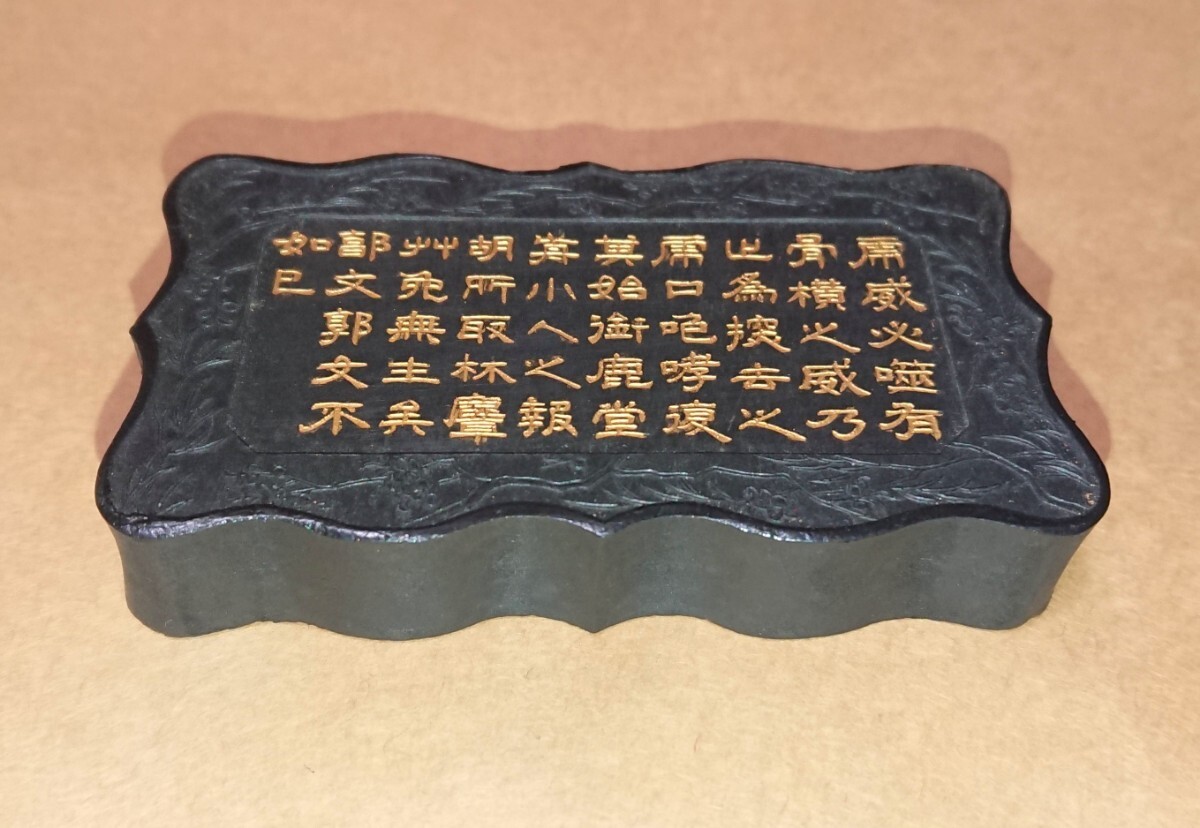 虎威必噬有
骨橫之威乃
止為探去之
虎口咆哮遽
其始銜鹿堂
小人之報
胡所取林麞
艸兔無主矣
文郭文不
如已